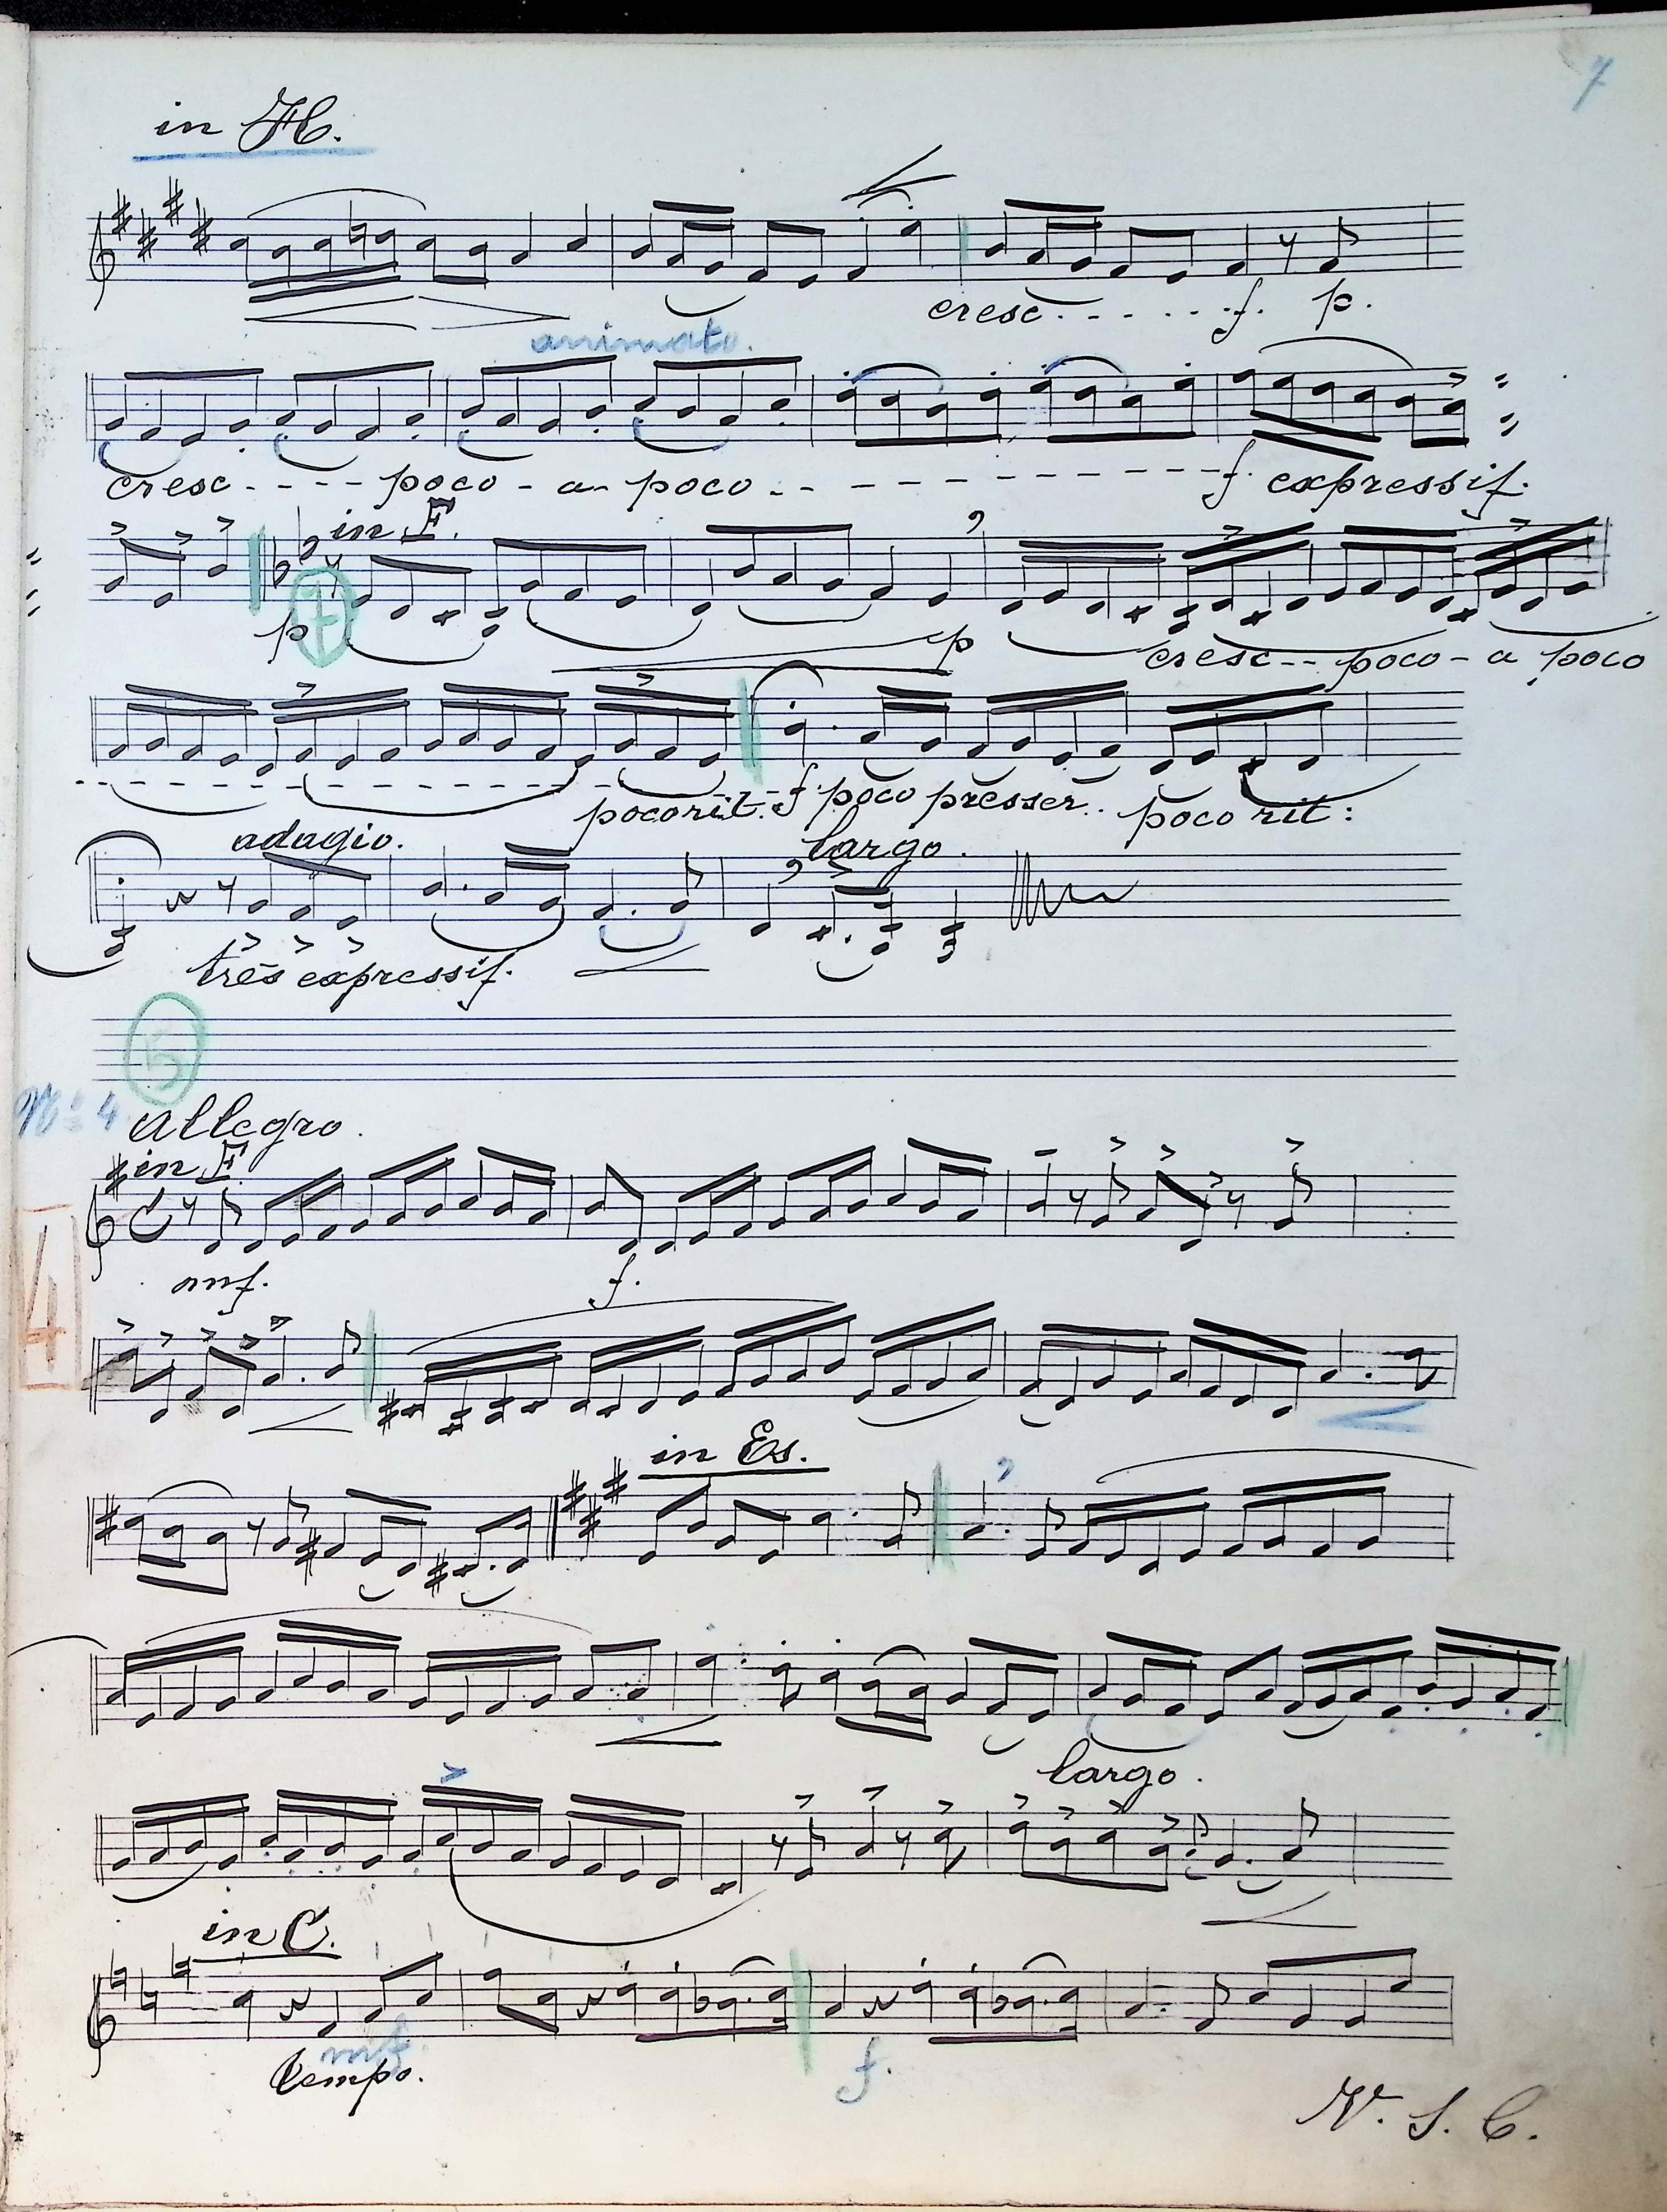 7
in H.
cresc - - - - - f. p.
animato.
cresc - - - - poco - a - poco - - - - - - - - - - f. expressif.
in F.
p p cresc - - poco - a poco
poco rit. - - f. poco presser. poco rit:
adagio. largo.
très expressif.
5
Nº 4 Allegro.
in F.
mf. f.
4
in Es.
largo.
in C.
mf.
tempo. f.
V. S. C.